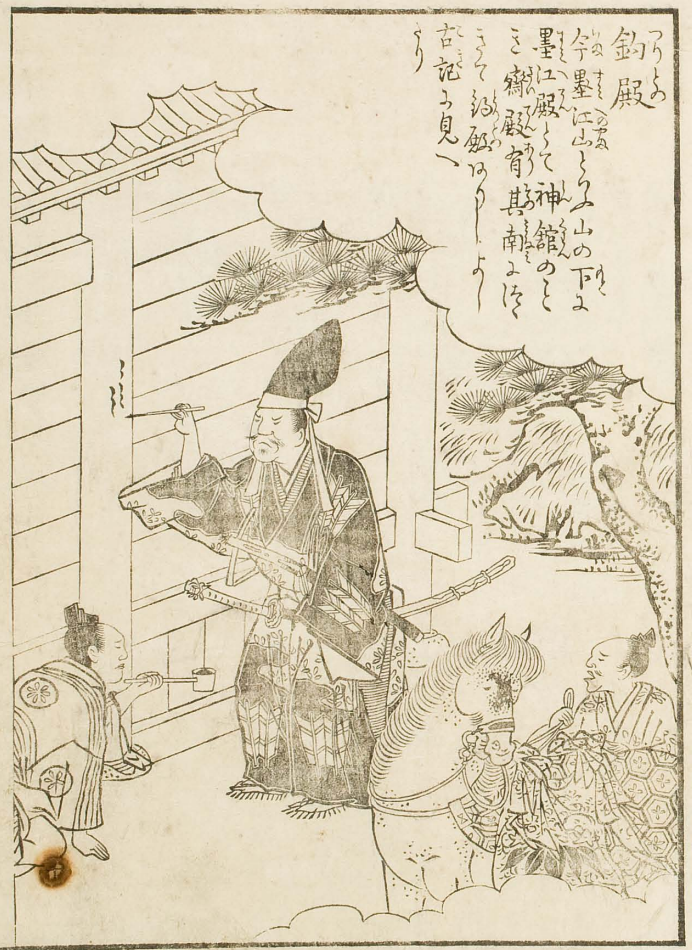 釣殿
今墨江山といふ山の下に
墨江殿とて神館のと
き齋殿有其南につゞ
きて釣殿ありしよし
古記に見へ
たり